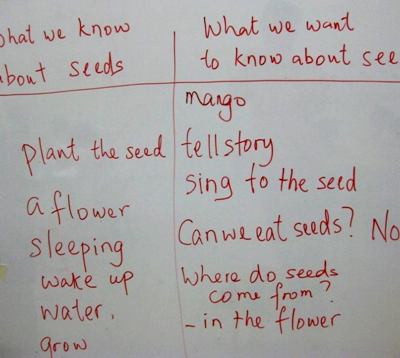 what we know
about seeds
plant the seed
a flower
sleeping
wake up
water.
grow
What we want
to know about see
mango
tell story
sing to the seed
Can we eat seeds? No
Where do seeds
come from?
- in the flower